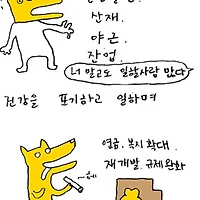 산재.
야근.
잔업.
너 말고도 일할사람 많다
건강을 포기하고 일하며
연금. 복지 확대.
재개발. 규제완화